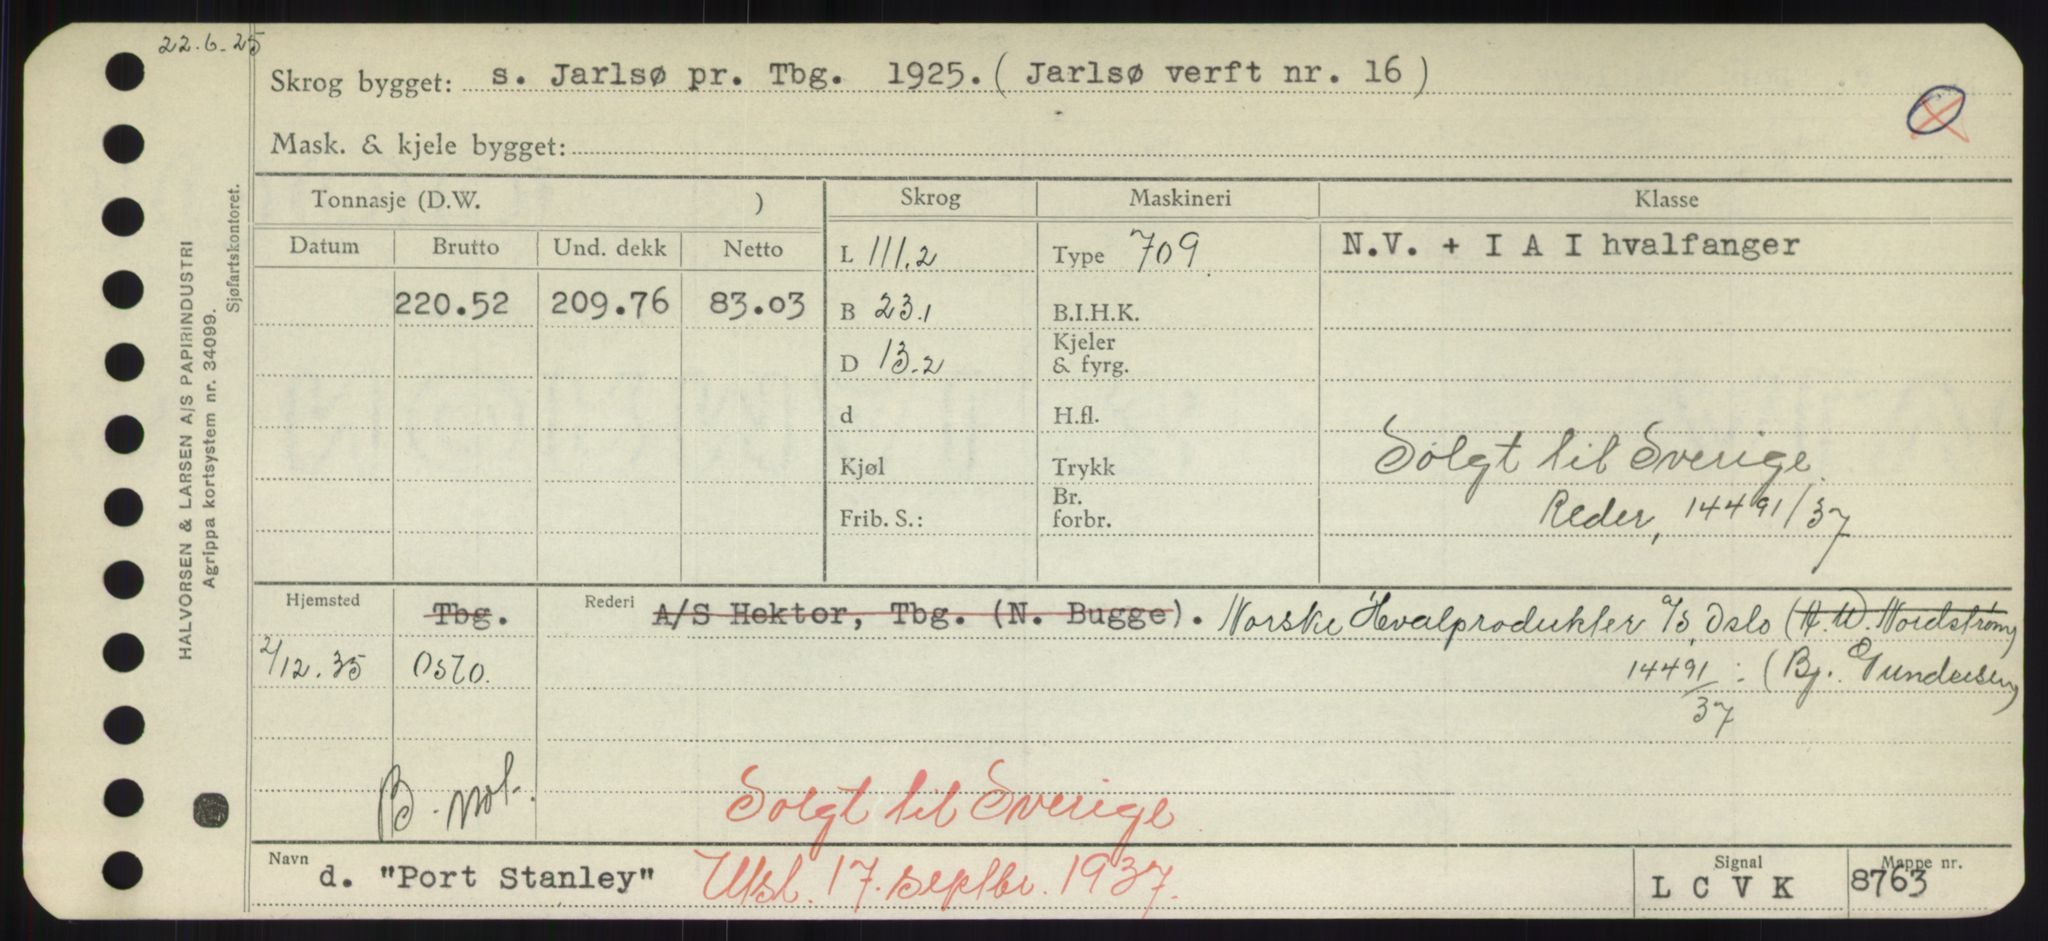 22.6.25
Skrog bygget: s. Jarlsø pr. Tbg. 1925. ( Jarlsø verft nr. 16 )
Mask. & kjele bygget:
HALVORSEN & LARSEN A/S PAPIRINDUSTRI
Agrippa kortsystem nr. 34099.
Sjøfartskontoret.
Tonnasje (D.W. ) Skrog Maskineri Klasse
Datum Brutto Und. dekk Netto L 111.2 Type 709. N.V. + I A I hvalfanger
220.52 209.76 83.03 B 23.1 B.I.H.K.
D 13.2 Kjeler & fyrg.
d H.fl.
Kjøl Trykk Solgt til Sverige.
Frib. S.: Br. forbr. Reder, 14491/37
Hjemsted Tbg. Rederi A/S Hektor, Tbg. (N. Bugge). Norske Hvalprodukter a/s, Oslo (A. W. Nordstrøm)
2/12.35 Oslo. 14491/37 : (Bj. Gundersen)
B. nol.
Solgt til Sverige.
Navn d. "Port Stanley" Utsl. 17. septbr. 1937. Signal L C V K Mappe nr. 8763